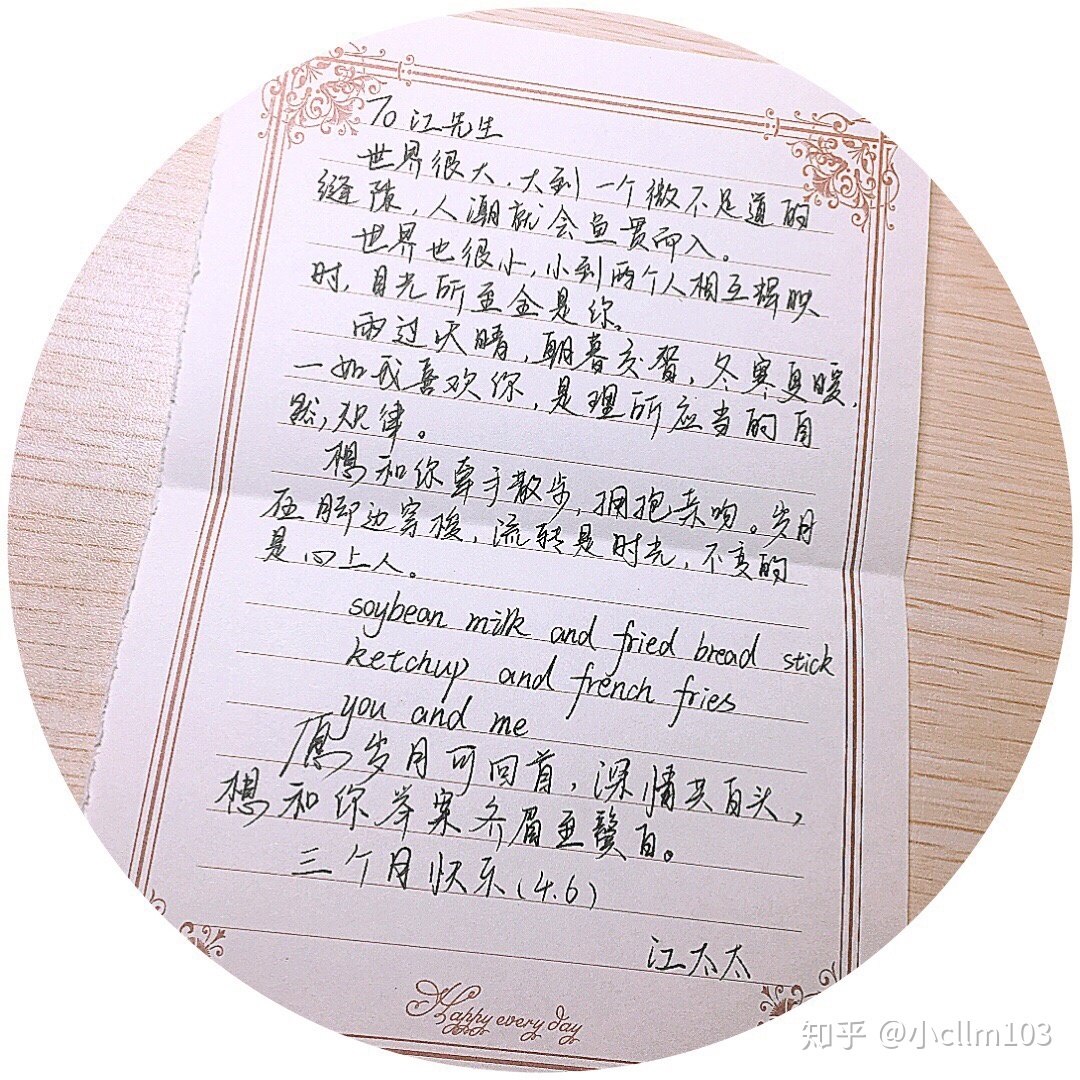 To 江先生
世界很大,大到一个微不足道的
缝隙,人潮就会鱼贯而入。
世界也很小,小到两个人相互辉映
时,目光所至全是你。
雨过天晴,朝暮交替,冬寒夏暖,
一如我喜欢你,是理所应当的自
然,规律。
想和你牵手散步,拥抱亲吻。岁月
在脚边穿梭,流转是时光,不变的
是心上人。
soybean milk and fried bread stick
ketchup and french fries
you and me
愿岁月可回首,深情共白头,
想和你举案齐眉至鬓白。
三个月快乐(4.6)
江太太
Happy every day
知乎 @小cllm103